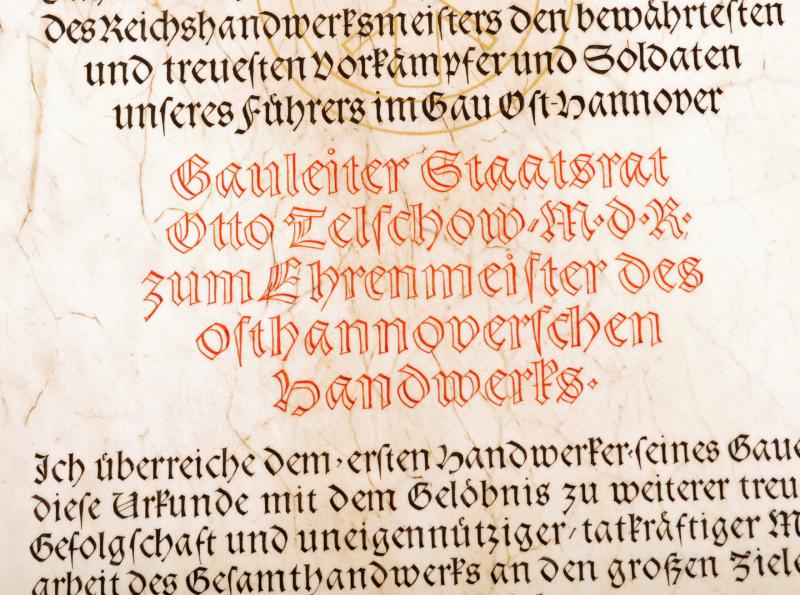 des Reichshandwerksmeisters den bewährtesten
und treuesten Vorkämpfer und Soldaten
unseres Führers im Gau Ost-Hannover
Gauleiter Staatsrat
Otto Telschow, M.d.R.
zum Ehrenmeister des
osthannoverschen
Handwerks.
Ich überreiche dem ersten Handwerker seines Gaue
diese Urkunde mit dem Gelöbnis zu weiterer treu
Gefolgschaft und uneigennütziger, tatkräftiger M
arbeit des Gesamthandwerks an den großen Ziele